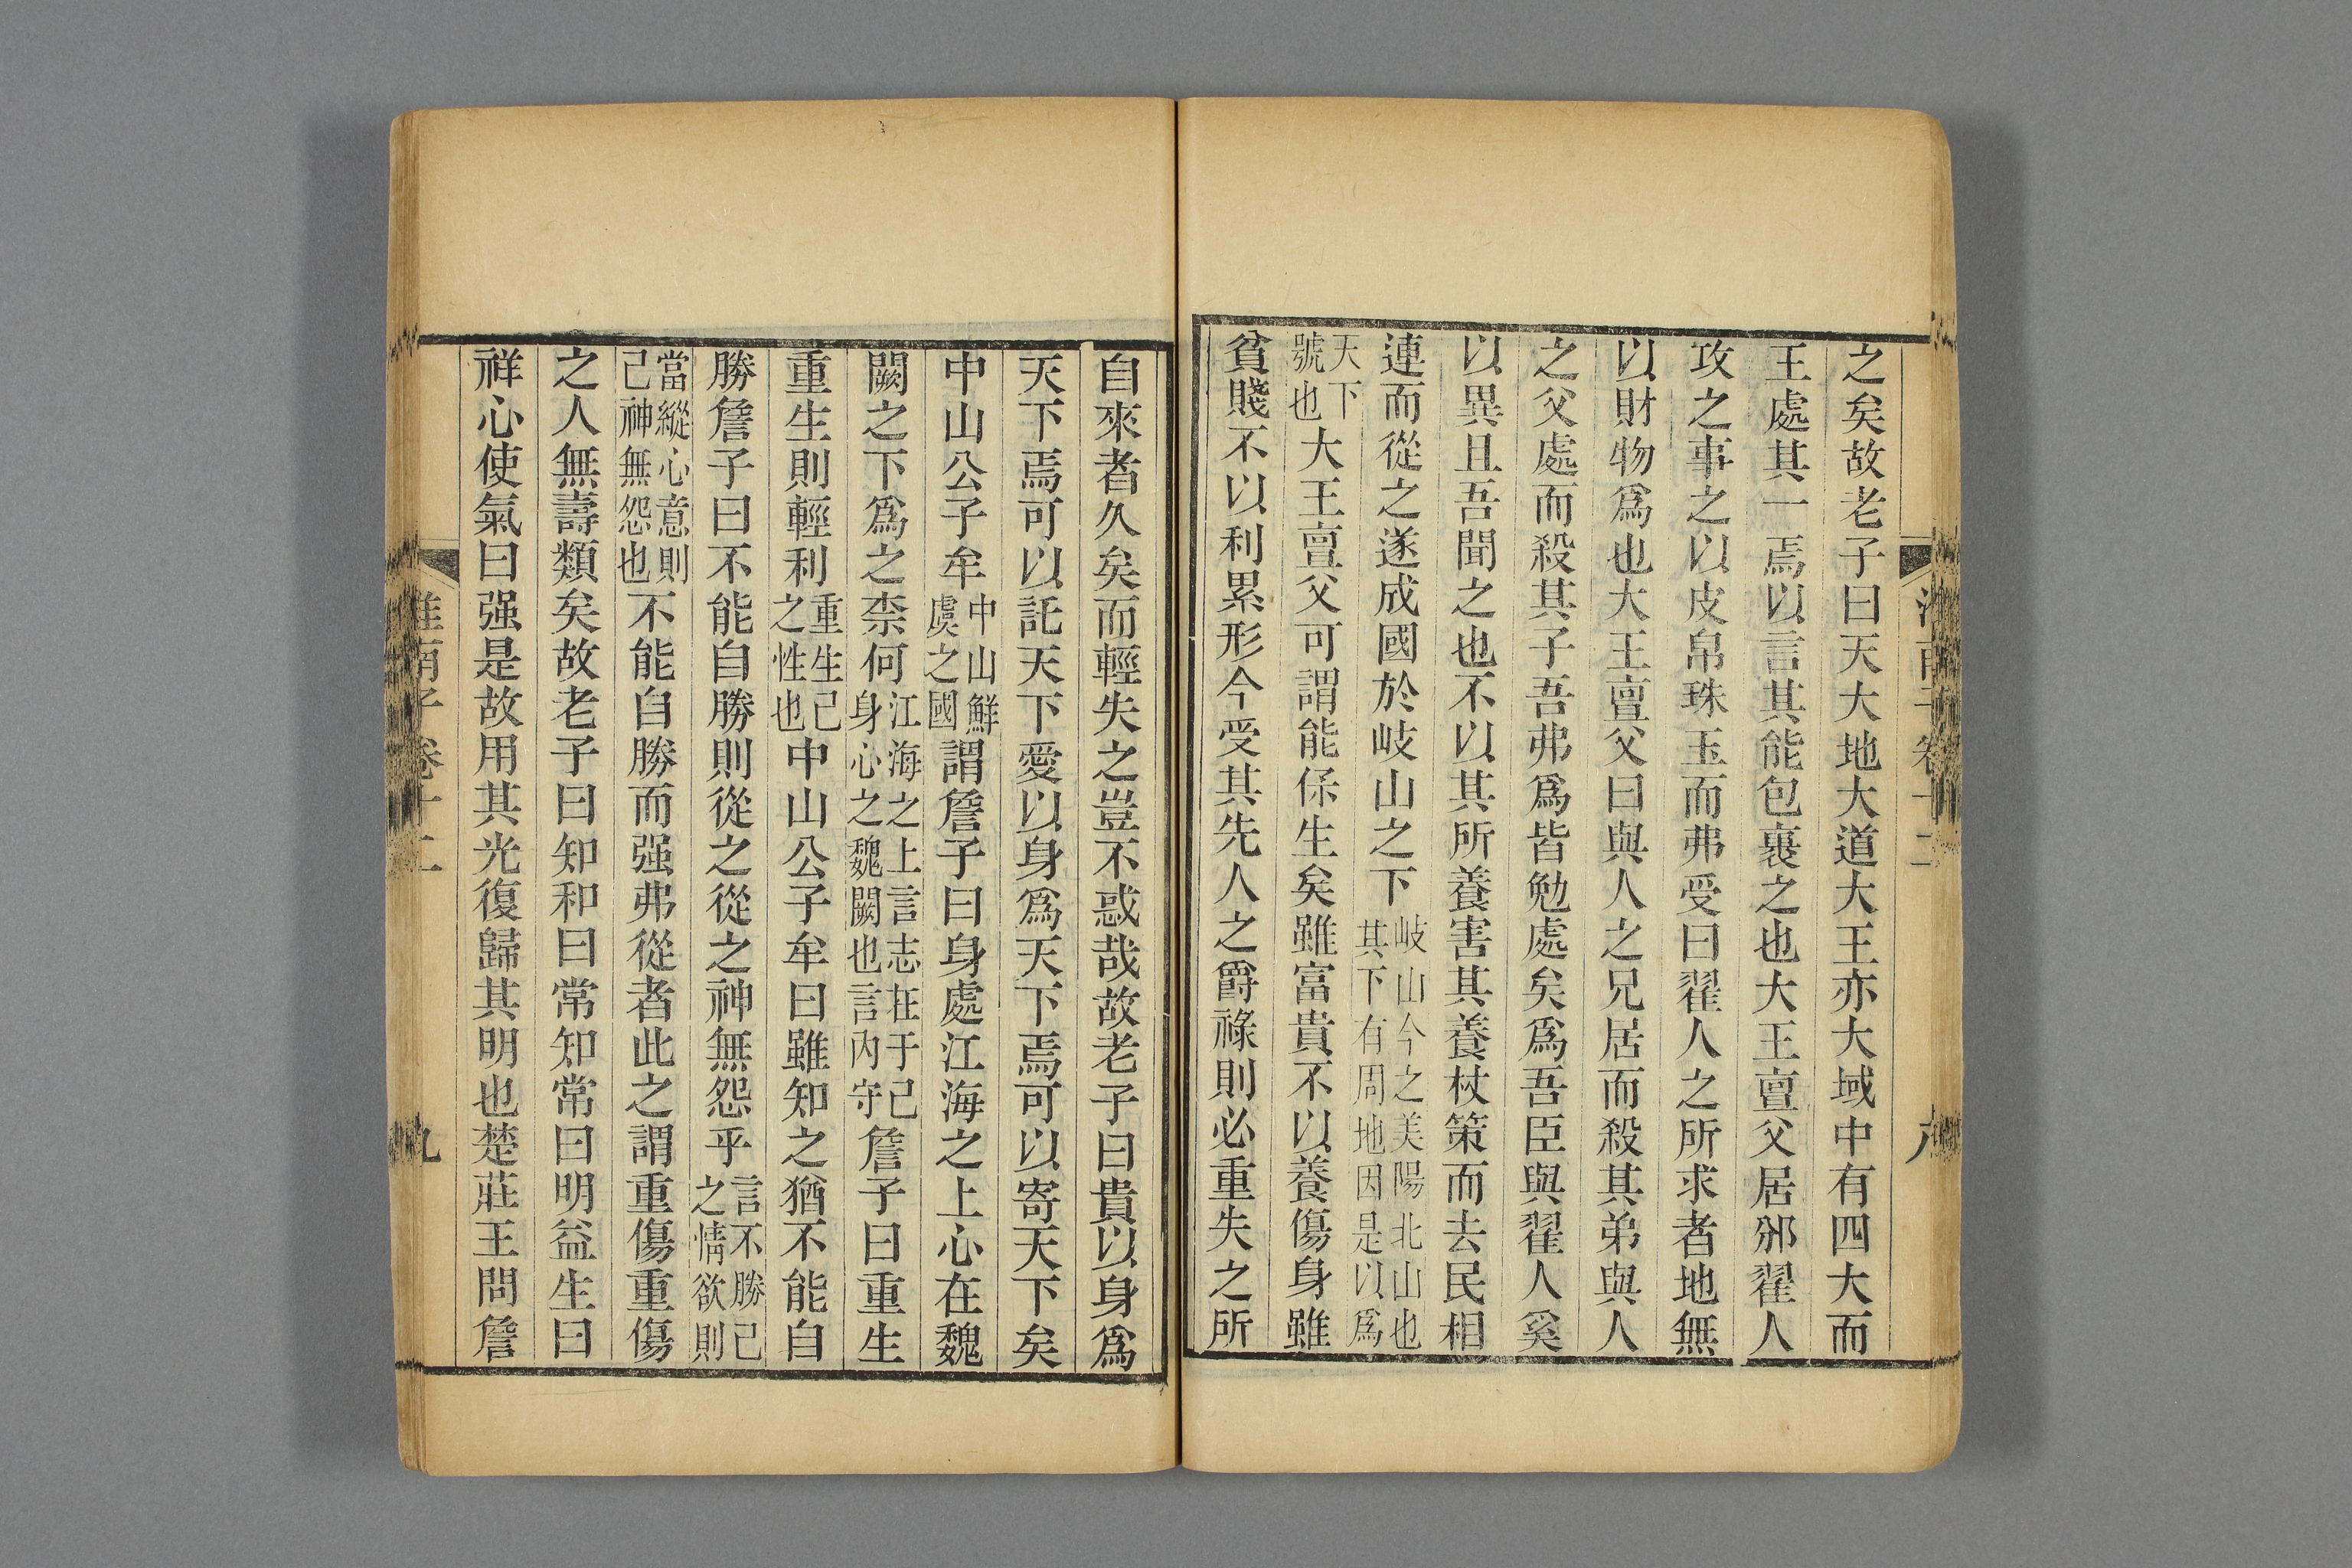 之矣故老子曰天大地大道大王亦大域中有四大而
王處其一焉以言其能包裹之也大王亶父居邠翟人
攻之事之以皮帛珠玉而弗受曰翟人之所求者地無
以財物爲也大王亶父曰與人之兄居而殺其弟與人
之父處而殺其子吾弗爲皆勉處矣爲吾臣與翟人奚
以異且吾聞之也不以其所養害其養杖策而去民相
連而從之遂成國於岐山之下岐山今之美陽北山也其下有周地因是以爲
天下號也大王亶父可謂能保生矣雖富貴不以養傷身雖
貧賤不以利累形今受其先人之爵祿則必重失之所
自來者久矣而輕失之豈不惑哉故老子曰貴以身爲
天下焉可以託天下愛以身爲天下焉可以寄天下矣
中山公子牟中山鮮虞之國謂詹子曰身處江海之上心在魏
闕之下爲之柰何江海之上言志在于己身心之魏闕也言內守詹子曰重生
重生則輕利重生己之性也中山公子牟曰雖知之猶不能自
勝詹子曰不能自勝則從之從之神無怨乎言不勝己之情欲則
當縱心意則己神無怨也不能自勝而强弗從者此之謂重傷重傷
之人無壽類矣故老子曰知和曰常知常曰明益生曰
祥心使氣曰强是故用其光復歸其明也楚莊王問詹
淮南子卷十二
九